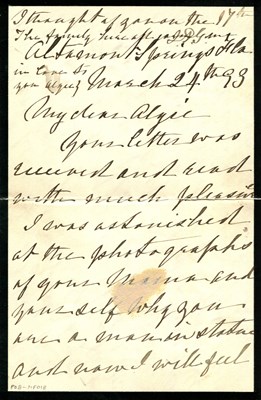 I thought of you on the 17th
The family here all
Altamont Springs Fla
in love to
you Algie
March 24th 93
My dear Algie
Your letter was
received and read
with much pleasure
I was astonished
at the photographs
of your Mama and
your self Why you
are a man in statue
and now I will feel